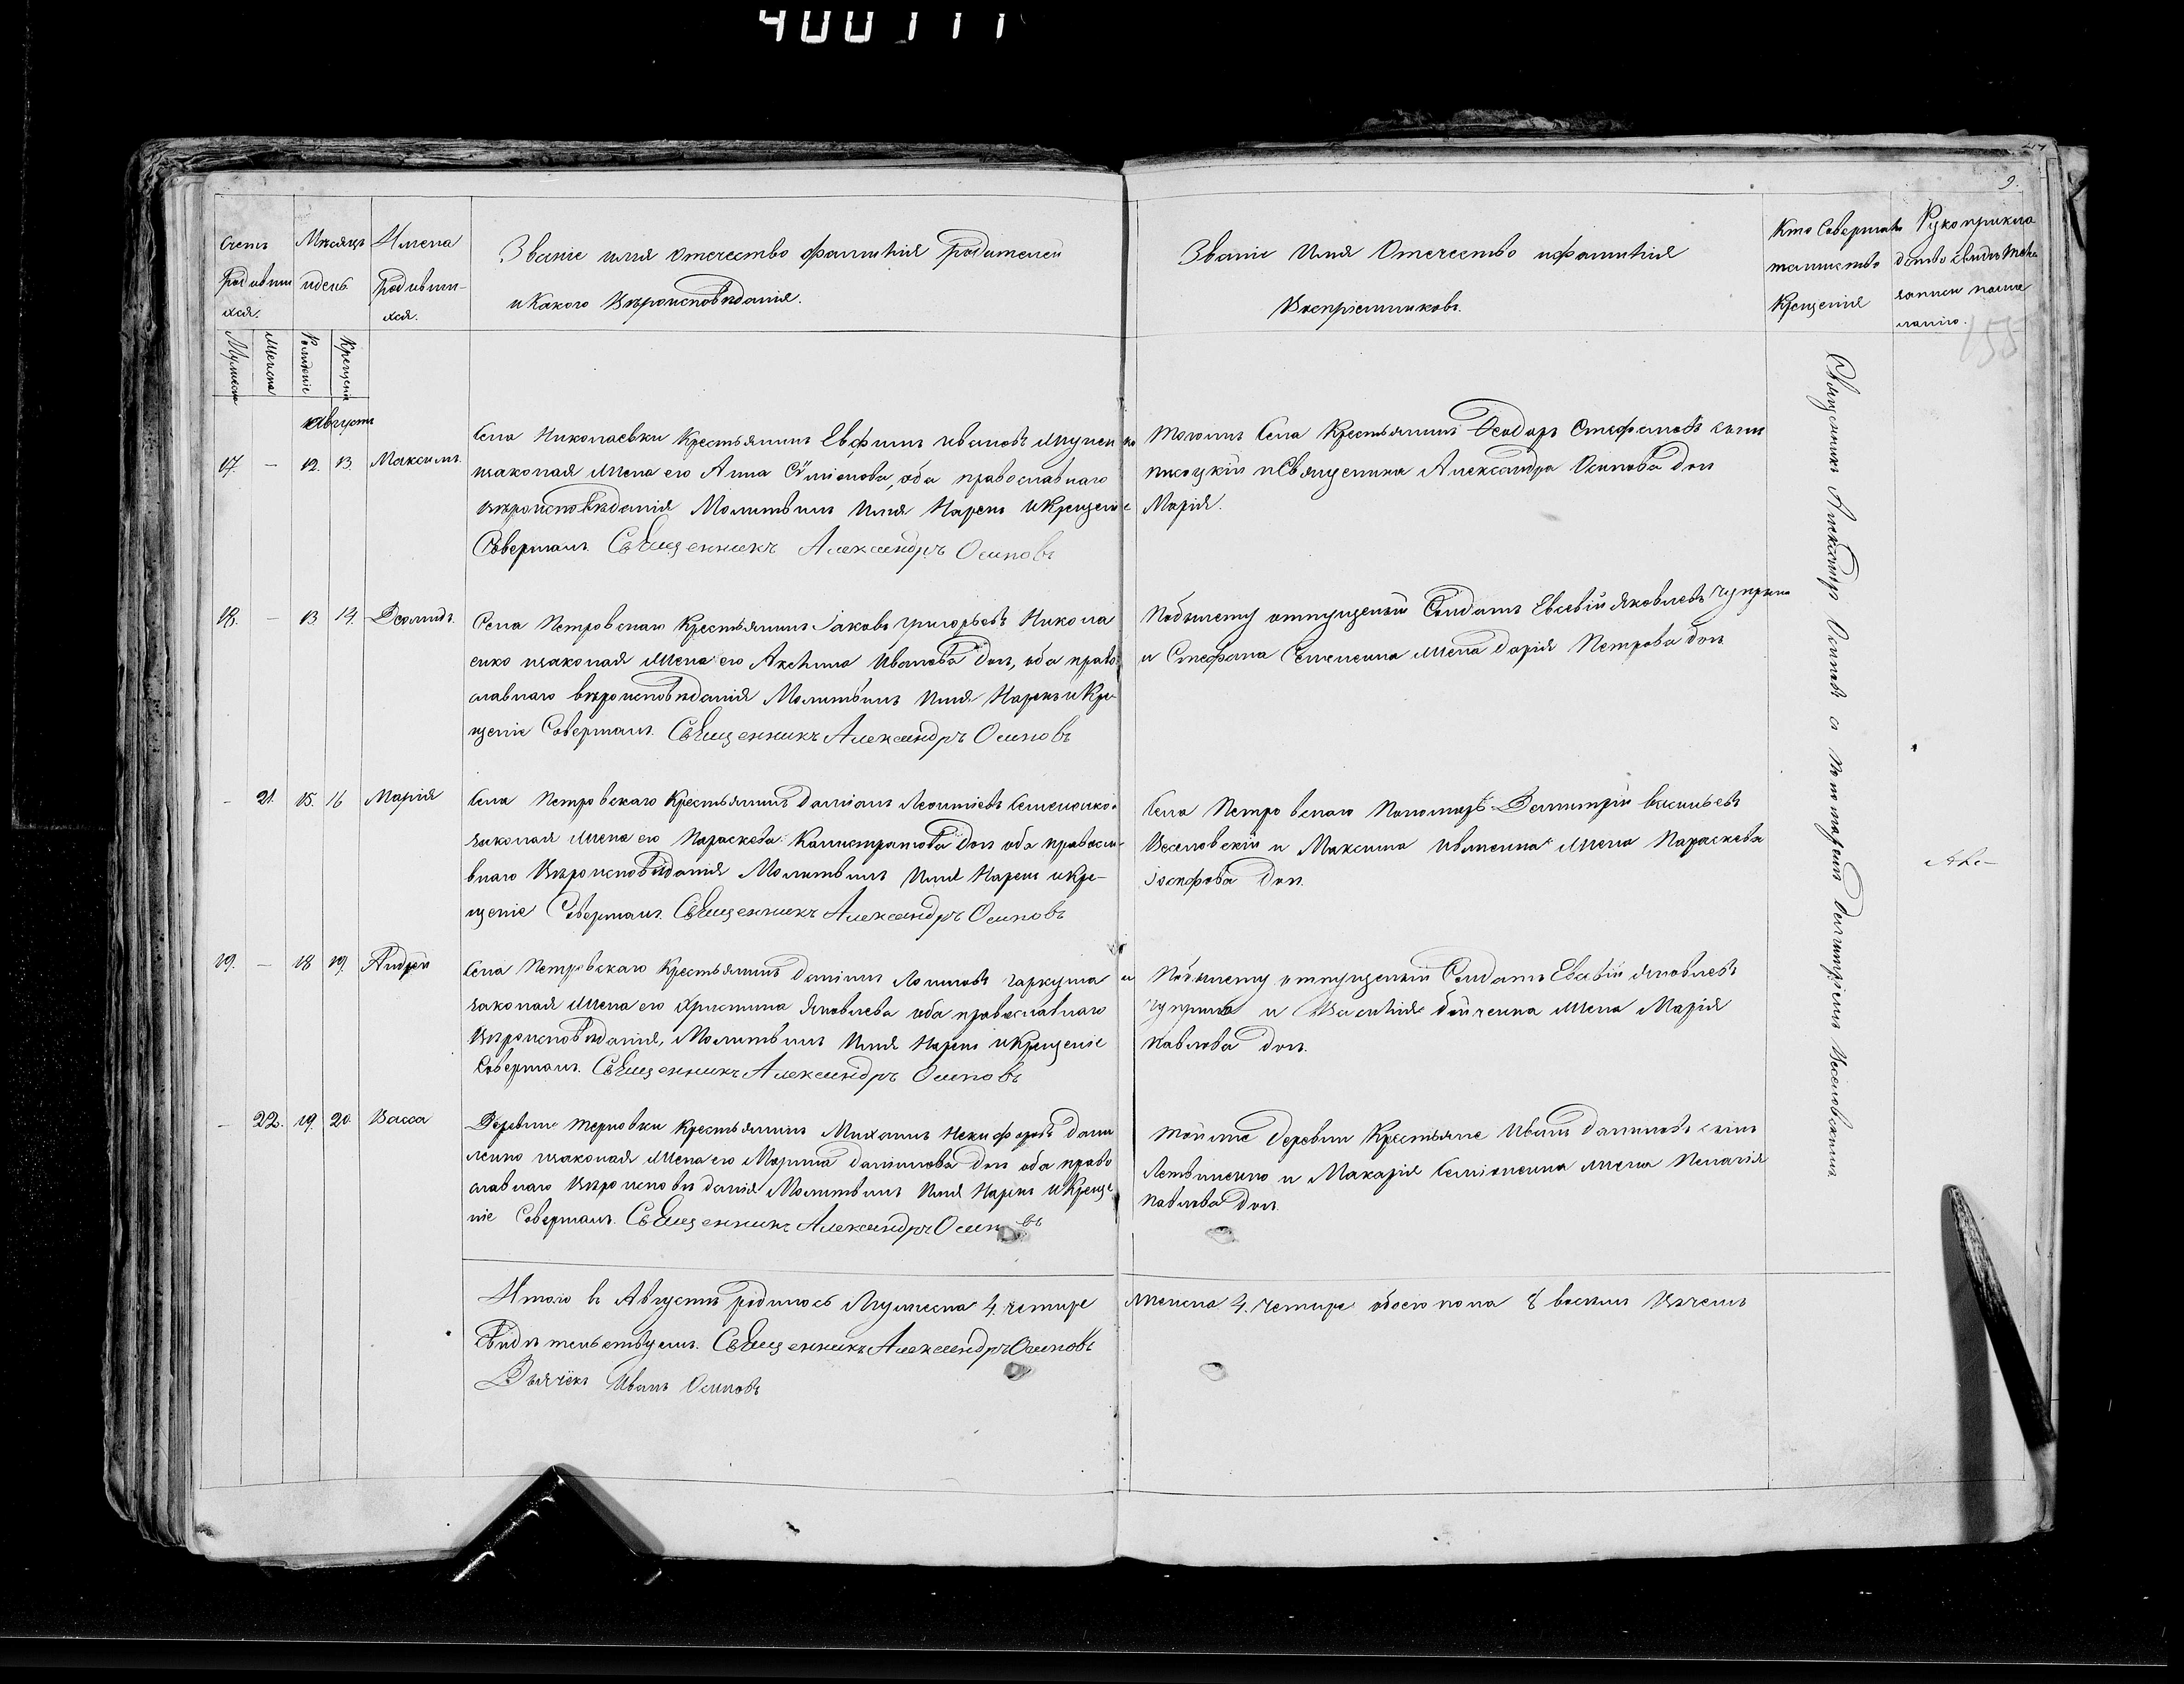 400111
9.
Счетъ родившихся.
Мужеска
Женска
Мѣсяцъ и день
Рожденіе
Крещенія
Имена родившихся.
Званіе имя отечество фамилія родителей
и какого вѣроисповѣданія.
Званіе Имя Отечество и фамилія
Воспріемниковъ.
Кто Совершалъ
таинство
Крещенія
Рукоприкла
дство свидѣтеле
записи по же
ланію.
155
Августъ
17. — 12. 13. Максимъ.
Села Николаевки Крестьянинъ Евфимъ Ивановъ
законая жена его Анна Симіонова, оба православнаго
вѣроисповѣданія Молитвилъ Имя Нарекъ и Крещеніе
Совершалъ Священникъ Александръ Осиповъ
Тогожъ Села Крестьянинъ Ѳеодоръ Стефановъ сынъ
и Священика Александра Осипова доч
Марія.
18. — 13 14. Діомидъ.
Села Петровскаго Крестьянинъ Іаковъ Григорьевъ Никола
енко законая жена его Аксинія Иванова доч, оба право
славнаго вѣроисповѣданія Молитвилъ Имя Нарекъ и Кре
щеніе Совершалъ Священникъ Александръ Осиповъ
По билету отпущеный Солдатъ Евсевій Яковлевъ Чуприна
и Стефана Семененка жена Дарія Петрова доч
— 21. 15. 16 Марія
Села Петровскаго Крестьянинъ Даміанъ Леонтіевъ Семененко
законая жена его Параскева Калистратова доч оба правосла
внаго Вѣроисповѣданія Молитвилъ Имя Нарекъ и Кре-
щеніе Совершалъ Священникъ Александръ Осиповъ
Села Петровскаго Пономарь Димитрій Васильевъ
и Максима жена Параскева
Іосифова доч.
19. — 18 19. Андрей
Села Петровскаго Крестьянинъ Даніилъ Логиновъ Гаркуша
законая жена его Христина Яковлева оба православнаго
Вѣроисповѣданія, Молитвилъ Имя Нарекъ и Крещеніе
Совершалъ Священникъ Александръ Осиповъ
По билету отпущеный Солдатъ Евсевій Яковлевъ
Чуприна и Василія Бойченка жена Марія
Павлова доч.
— 22. 19. 20. Васса
Деревни Терновки Крестьянинъ Михаилъ Никифоровъ Дани
ленко законая жена его Марина Даніилова доч оба право
славнаго Вѣроисповѣданія Молитвилъ Имя Нарекъ и Креще
ніе Совершалъ Священникъ Александръ Осиповъ
Той же Деревни Крестьяне Иванъ Даниловъ сынъ
и Макарія Симіоненка жена Пелагія
Павлова доч.
Священникъ Александръ Осиповъ съ Пономаремъ Димитріемъ
Итого въ Августѣ родилось Мужеска 4. четыре женска 4. четыре обоего пола 8 восемь Въ чемъ
Свидѣтельствуемъ. Священникъ Александръ Осиповъ
Дьячекъ Иванъ Осиповъ